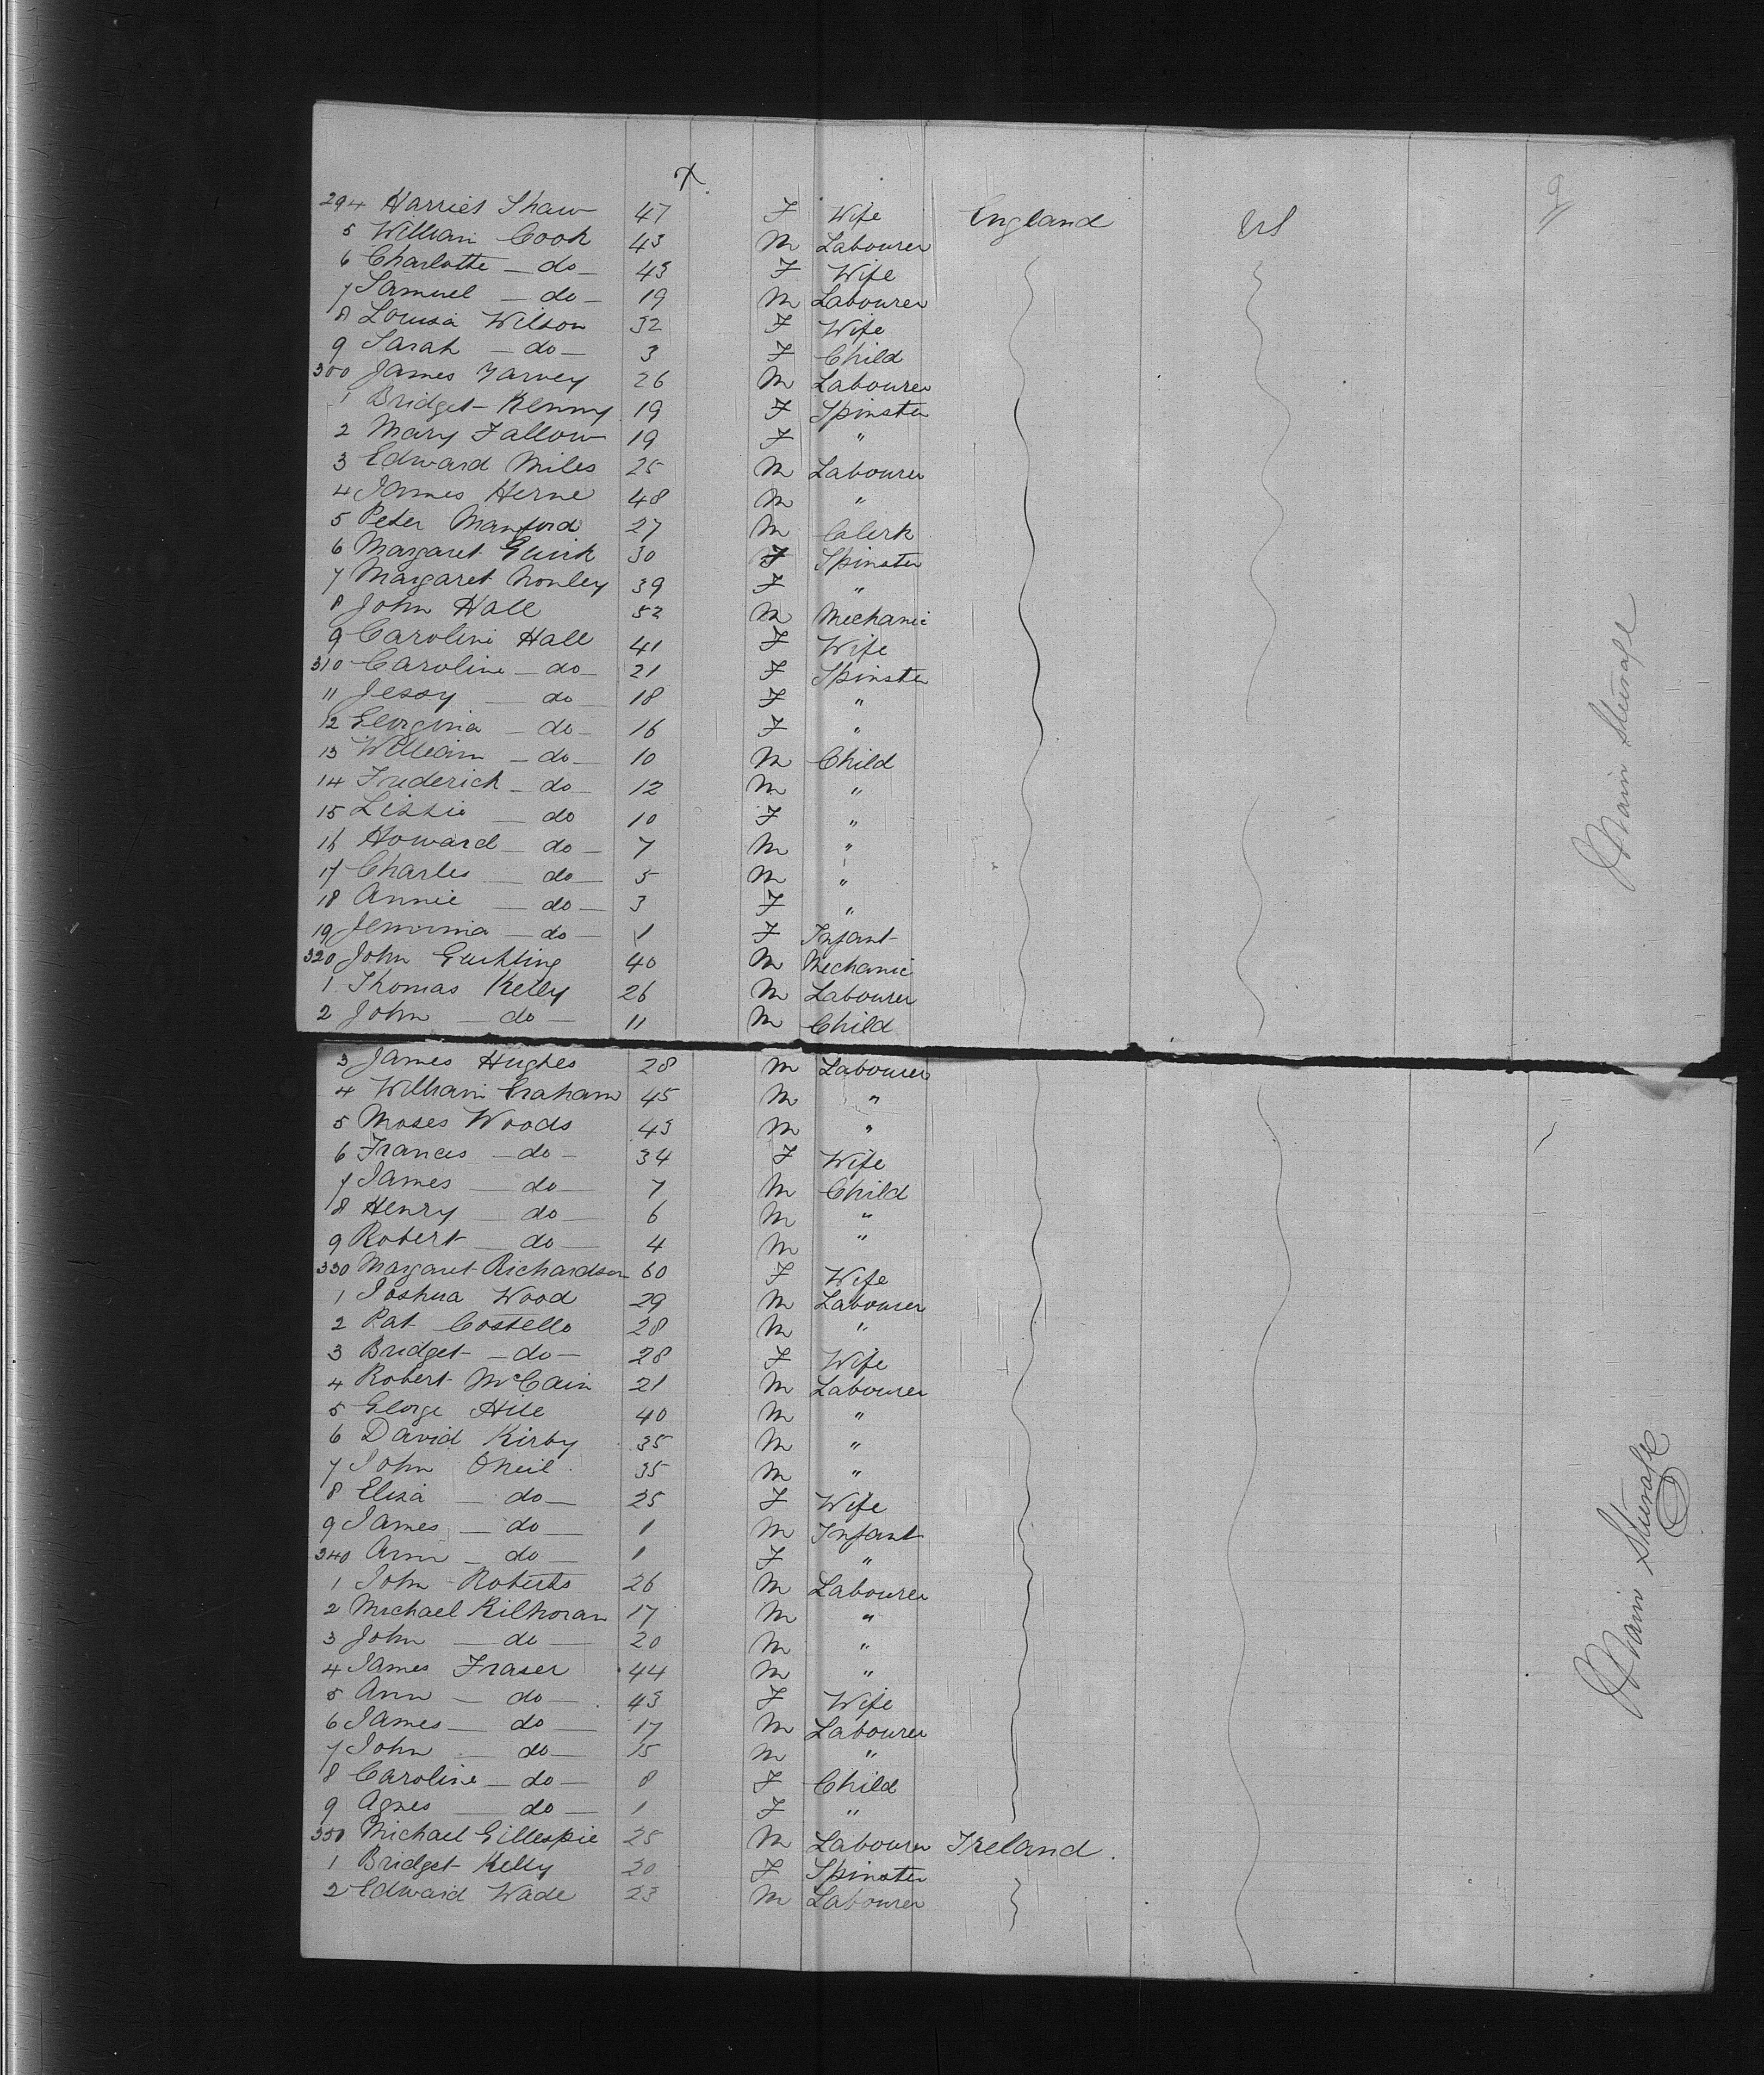 x 9
294 Harriet Shaw 47 F Wife England US
5 William Cook 43 M Labourer
6 Charlotte — do — 43 F Wife
7 Samuel — do — 19 M Labourer
8 Louisa Wilson 32 F Wife
9 Sarah — do — 3 F Child
300 James Yarvey 26 M Labourer
1 Bridget Kenny 19 F Spinster
2 Mary Fallow 19 F "
3 Edward Miles 25 M Labourer
4 James Herne 48 M "
5 Peter Manford 27 M Clerk
6 Margaret 30 F Spinster
7 Margaret 39 F "
8 John Hall 52 M Mechanic
9 Caroline Hall 41 F Wife
310 Caroline — do — 21 F Spinster
11 Jessy — do 18 F "
12 Georgina — do — 16 F "
13 William — do — 10 M Child
14 Frederick — do — 12 M "
15 Lizzie — do 10 F "
16 Howard — do — 7 M "
17 Charles — do — 5 M "
18 Annie — do — 3 F "
19 Jemima — do — 1 F Infant
320 John 40 M Mechanic
1 Thomas Kelly 26 M Labourer
2 John — do — 11 M Child
3 James Hughes 28 M Labourer
4 William Graham 45 M "
5 Moses Woods 43 M "
6 Frances — do — 34 F Wife
7 James — do — 7 M Child
8 Henry — do — 6 M "
9 Robert — do — 4 M "
330 Margaret Richardson 60 F Wife
1 Joshua Wood 29 M Labourer
2 Pat Costello 28 M "
3 Bridget — do — 28 F Wife
4 Robert McCain 21 M Labourer
5 George Hill 40 M "
6 David Kirby 35 M "
7 John Oneil 35 M "
8 Eliza — do — 25 F Wife
9 James — do — 1 M Infant
340 Ann — do — 1 F "
1 John Roberts 26 M Labourer
2 Michael Kilhoran 17 M "
3 John — do — 20 M "
4 James Fraser 44 M "
5 Ann — do — 43 F Wife
6 James — do — 17 M Labourer
7 John — do — 15 M "
8 Caroline — do — 8 F Child
9 Agnes — do — 1 F "
350 Michael Gillespie 25 M Labourer Ireland.
1 Bridget Kelly 20 F Spinster
2 Edward Wade 23 M Labourer
Main Steerage
Main Steerage